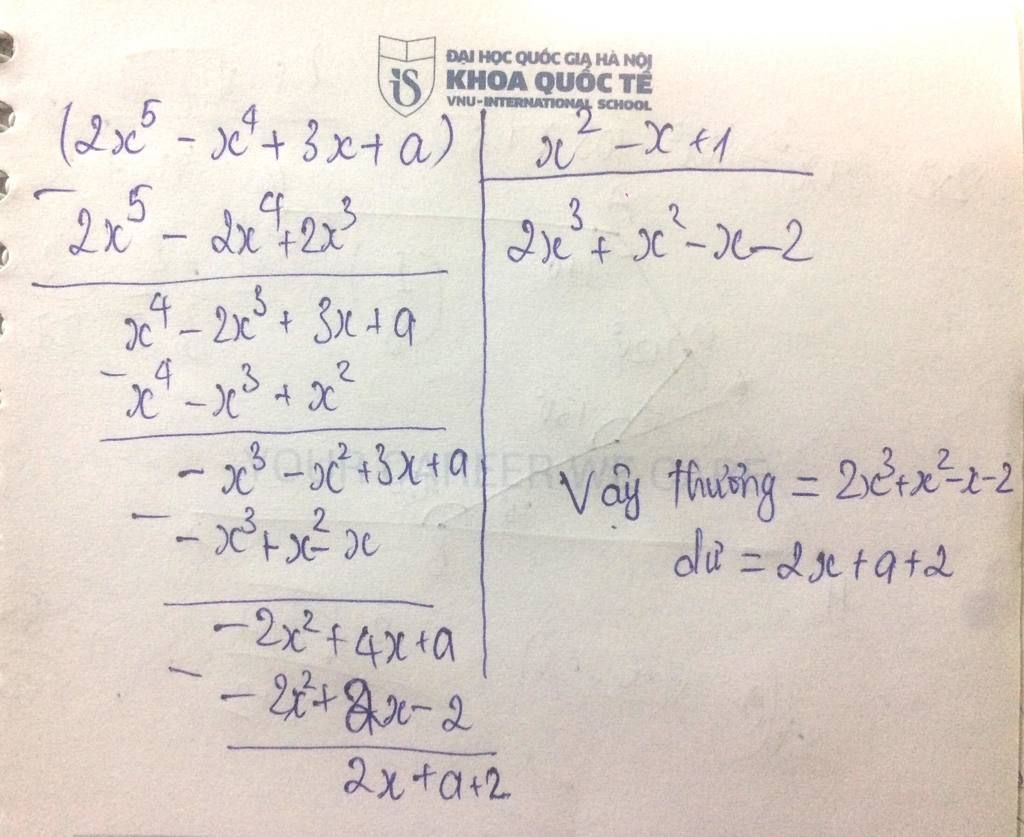 ĐẠI HỌC QUỐC GIA HÀ NỘI
KHOA QUỐC TẾ
VNU-INTERNATIONAL SCHOOL
(2x⁵ - x⁴ + 3x + a)
x² - x + 1
- 2x⁵ - 2x⁴ + 2x³
2x³ + x² - x - 2
x⁴ - 2x³ + 3x + a
- x⁴ - x³ + x²
- x³ - x² + 3x + a
- - x³ + x² - x
- 2x² + 4x + a
- - 2x² + 2x - 2
2x + a + 2
Vậy thương = 2x³ + x² - x - 2
dư = 2x + a + 2